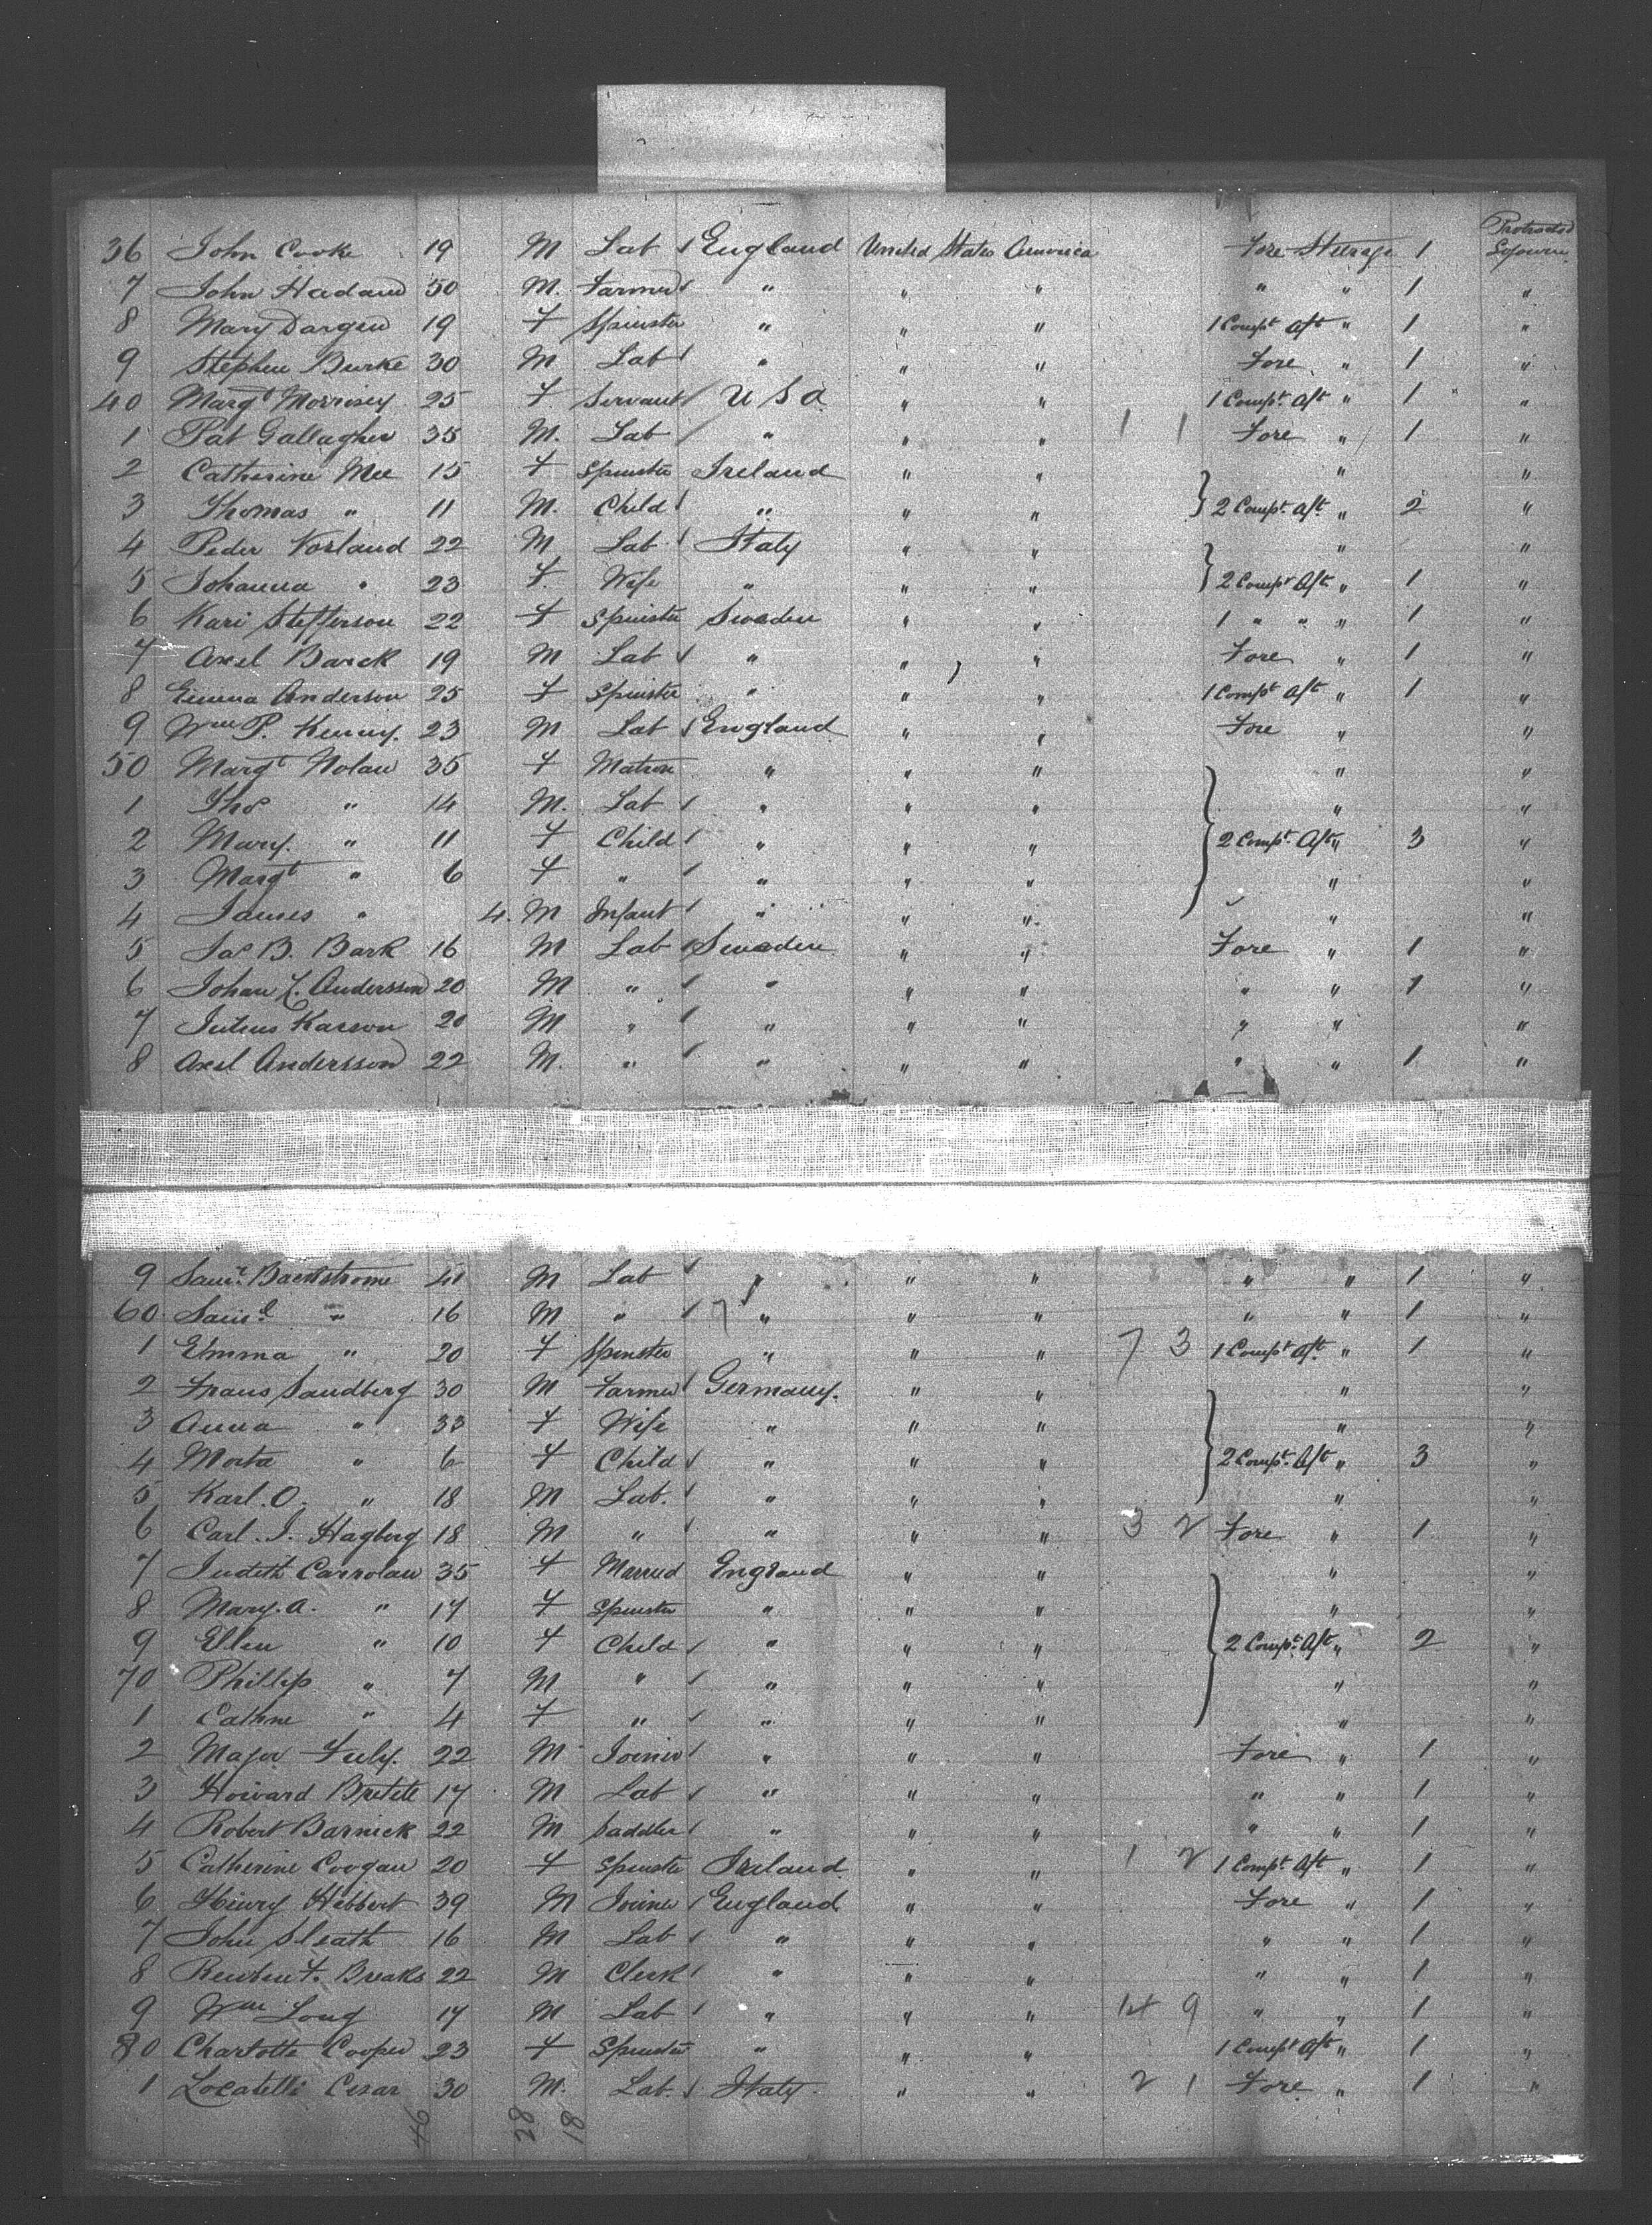 Protracted
36 John Cooke 19 M Lab England United States America Fore Steerage 1 Sojourn
7 John Hadand 50 M. Farmer " " " " " 1 "
8 Mary Dargen 19 F Spinster " " " 1 Compt Aft " 1 "
9 Stephen Burke 30 M Lab " " " Fore " 1 "
40 Margt Morrisey 25 F Servant U S A " " 1 Compt Aft " 1 "
1 Pat Gallagher 35 M. Lab " " " 1 1 Fore " 1 "
2 Catherine Mee 15 F Spinster Ireland " " " "
3 Thomas " 11 M. Child " " " 2 Compt Aft " 2 "
4 Peder Vorland 22 M Lab Italy " " " "
5 Johanna " 23 F. Wife " " " 2 Compt Aft " 1 "
6 Kari Stefferson 22 F Spinster Sweden " " 1 " " " 1 "
7 Axel Barck 19 M Lab " " " Fore " 1 "
8 Emma Anderson 25 F Spinster " " " 1 Compt Aft " 1 "
9 Wm P. Kenny. 23 M Lab England " " Fore " "
50 Margt Nolan 35 F Matron " " " " "
1 Thos " 14 M. Lab " " " " "
2 Mary. " 11 F Child " " " 2 Compt Aft " 3 "
3 Margt " 6 F " " " " " "
4 James " 4. M Infant " " " " "
5 Jas B. Bark 16 M Lab Sweden " " Fore " 1 "
6 Johan Andersson 20 M " " " " " " 1 "
7 Julius Karson 20 M " " " " " " "
8 Axel Andersson 22 M. " " " " " " 1 "
9 Saml. Backstrome 41 M Lab " " " " " 1 "
60 Saml " 16 M " 7 " " " " " 1 "
1 Emma " 20 F Spinster " " " 7 3 1 Compt Aft " 1 "
2 Frans Sandberg 30 M Farmer Germany. " " " "
3 Anna " 33 F Wife " " " " "
4 Morta " 6 F Child " " " 2 Compt Aft " 3 "
5 Karl. O. " 18 M Lab. " " " " "
6 Carl. J. Hagberg 18 M " " " " 3 2 Fore " 1 "
7 Judith Carrolan 35 F Married England " " " "
8 Mary. A. " 17 F Spinster " " " " "
9 Ellen " 10 F Child " " " 2 Compt Aft " 2 "
70 Phillip " 7 M " " " " " "
1 Cathne " 4 F " " " " " "
2 Major Fuly. 22 M Joiner " " " Fore " 1 "
3 Howard 17 M Lab " " " " " 1 "
4 Robert Barnick 22 M Saddler " " " " " 1 "
5 Catherine Coogan 20 F Spinster Ireland " " 1 2 1 Compt Aft " 1 "
6 Henry Hebbert 39 M Joiner England " " Fore " 1 "
7 John Sleath 16 M Lab " " " " " 1 "
8 Reuben F. Breaks 22 M Clerk " " " " " 1 "
9 Wm Long 17 M Lab " " " 14 9 " " 1 "
80 Charlotte Cooper 23 F Spinster " " " 1 Compt Aft " 1 "
1 Locatelli Cesar 30 M. Lab. Italy " " 2 1 Fore " 1 "
46 28 18